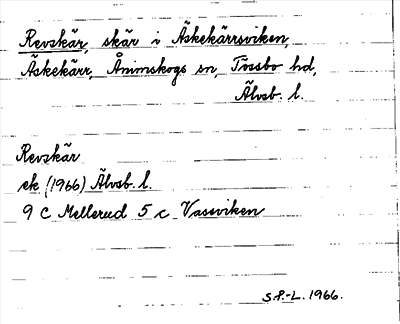 Revskär, skär i Äskekärrsviken,
Äskekärr, Ånimskogs sn, Tössbo hd,
Älvsb. l.
Revskär
ek (1966) Älvsb. l.
9 C Mellerud 5 c Vassviken
S.P.-L. 1966.